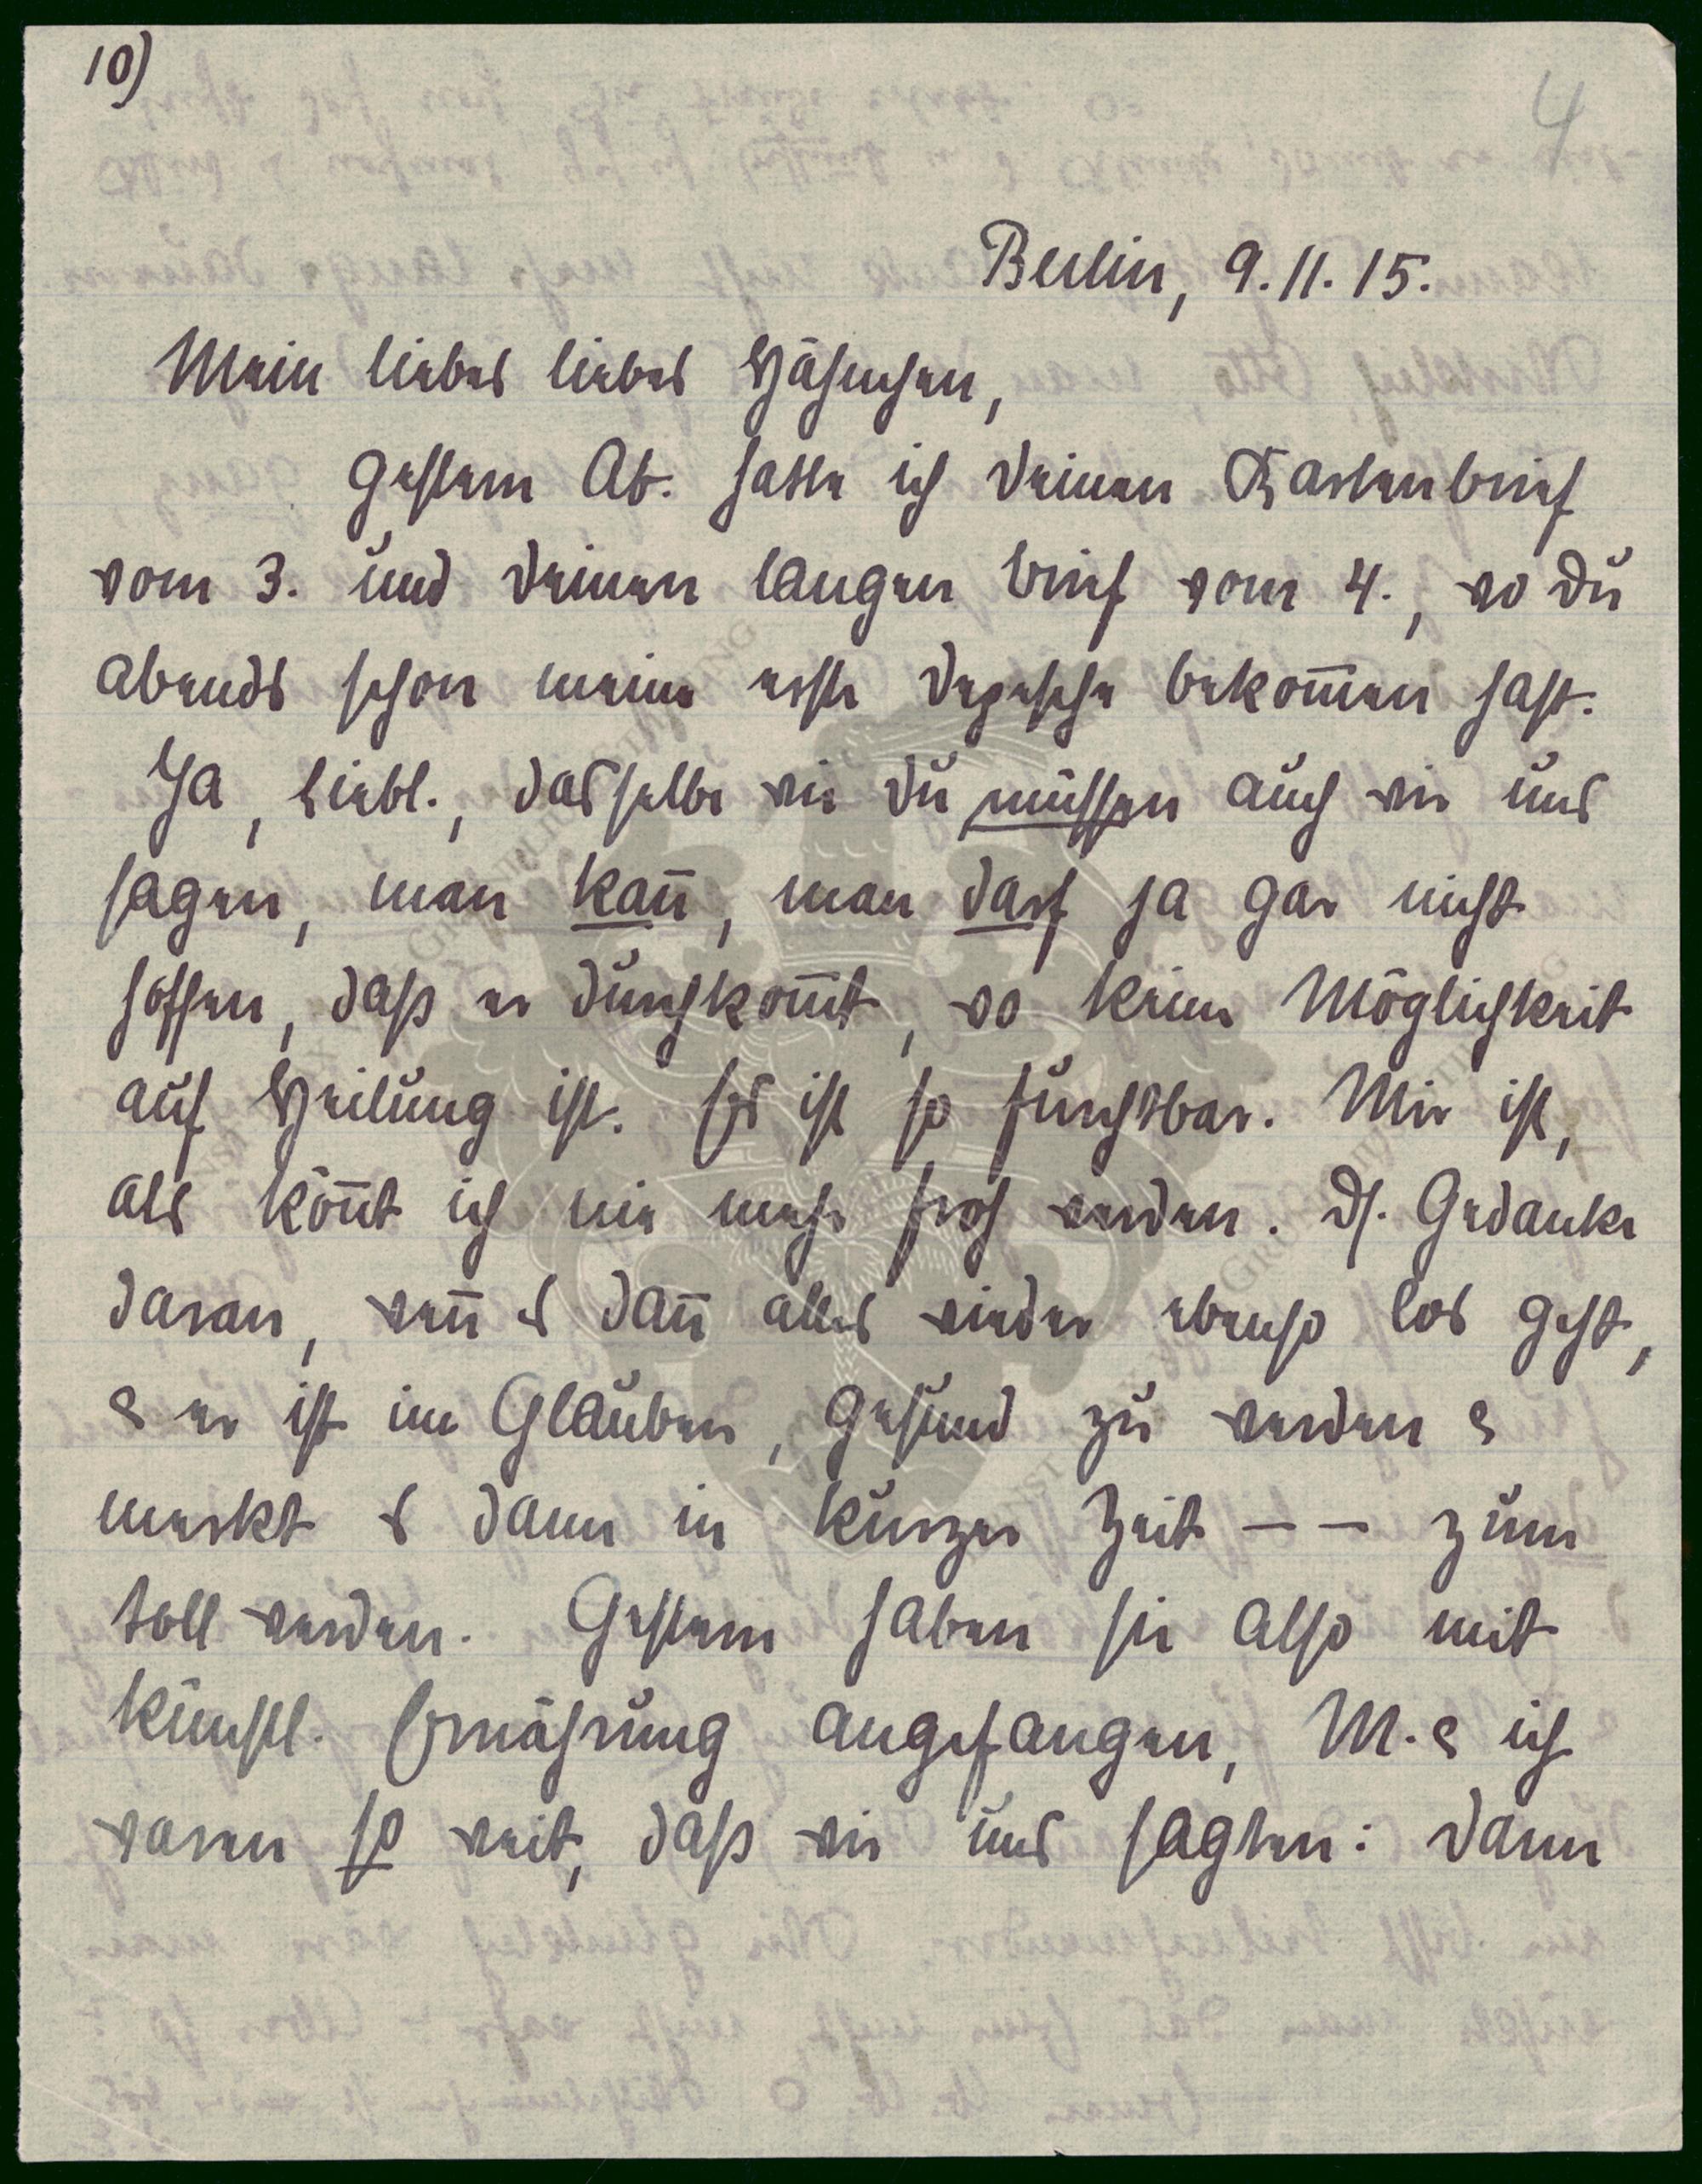 10)
4
Berlin, 9.11.15.
Mein liebes liebes Häschen,
gestern Ab. hatte ich deinen Kartenbrief
vom 3. und deinen langen Brief vom 4., wo du
abends schon meine erste Depesche bekom̅en hast.
Ja, Liebl., dasselbe wie du müssen auch wir uns
sagen, man kan̅, man darf ja gar nicht
hoffen, daß er durchkom̅t, wo keine Möglichkeit
auf Heilung ist. Es ist so furchtbar. Mir ist,
als kön̅t ich nie mehr froh werden. Ds. Gedanke
daran, wen̅ es dan̅ alles wieder ebenso los geht,
& er ist im Glauben, gesund zu werden &
merkt es dann in kurzer Zeit – – zum
toll werden. Gestern haben sie also mit
künstl. Ernährung angefangen, M. & ich
waren so weit, daß wir uns sagten: dann